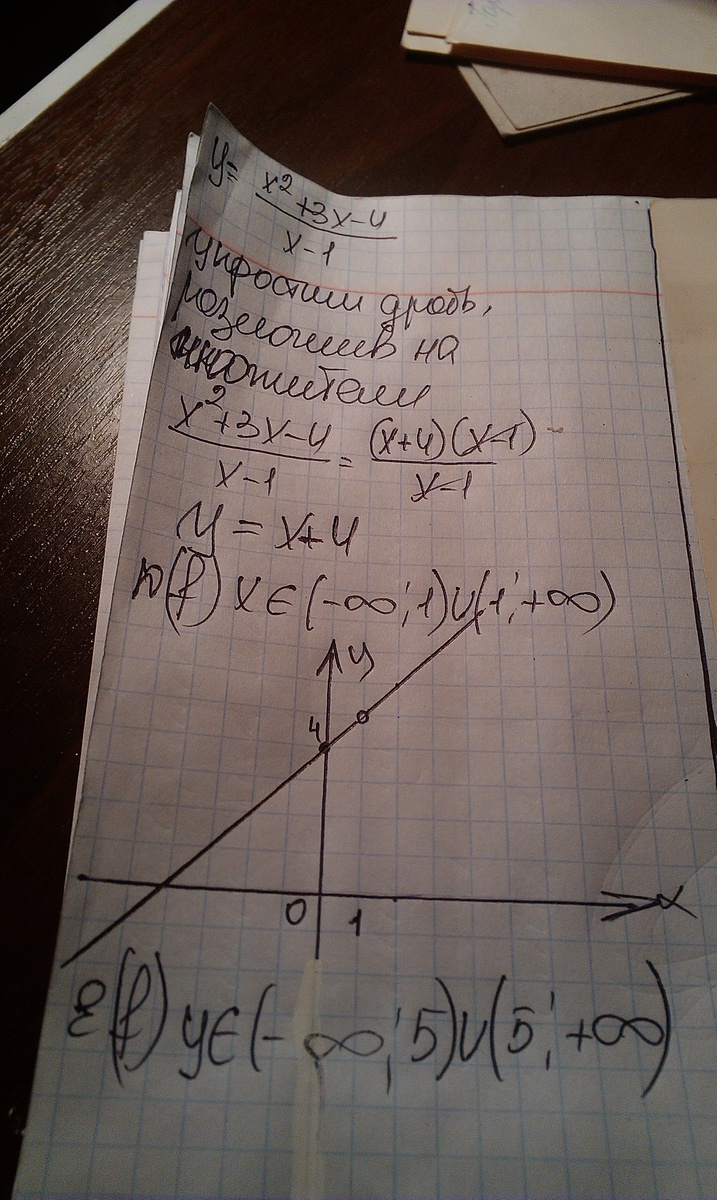 y= x²+3x-4 / x-1
упростим дробь,
разложив на
множители
x²+3x-4 / x-1 = (x+4)(x-1) / x-1
y = x+4
D(f) x∈(-∞;1)∪(1;+∞)
y
4
0 1 x
E(f) y∈(-∞;5)∪(5;+∞)